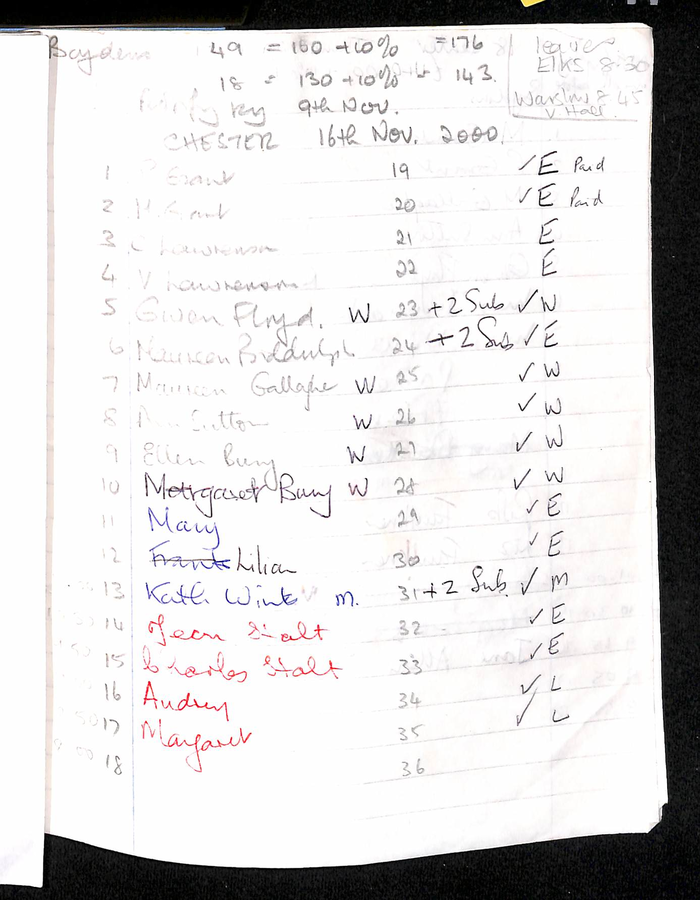 49 = 160 + 10% = 176
18 = 130 + 10% 143.
leaves
ELKS 8.30
8 45
V Hall
9th Nov.
CHESTER 16th Nov. 2000.
1 Grant 19 ✓ E Paid
2 20 ✓ E Paid
3 Lawrenson 21 E
4 V Lawrenson 22 E
5 Gwen Floyd. W 23 + 2 Sub ✓ W
6 Maureen Biddulph 24 + 2 Sub ✓ E
7 Maureen Gallaghe W 25 ✓ W
8 Sutton W 26 ✓ W
9 Ellen Bury W 27 ✓ W
10 Margaret Bury W 28 ✓ W
11 Mary 29 ✓ E
12 Frank Lilian 30 ✓ E
13 Kath Wink m. 31 + 2 Sub. ✓ m
14 Jean Stalt 32 ✓ E
15 Charles Stalt 33 ✓ E
16 Audrey 34 ✓ L
17 Margaret 35 ✓ L
18 36